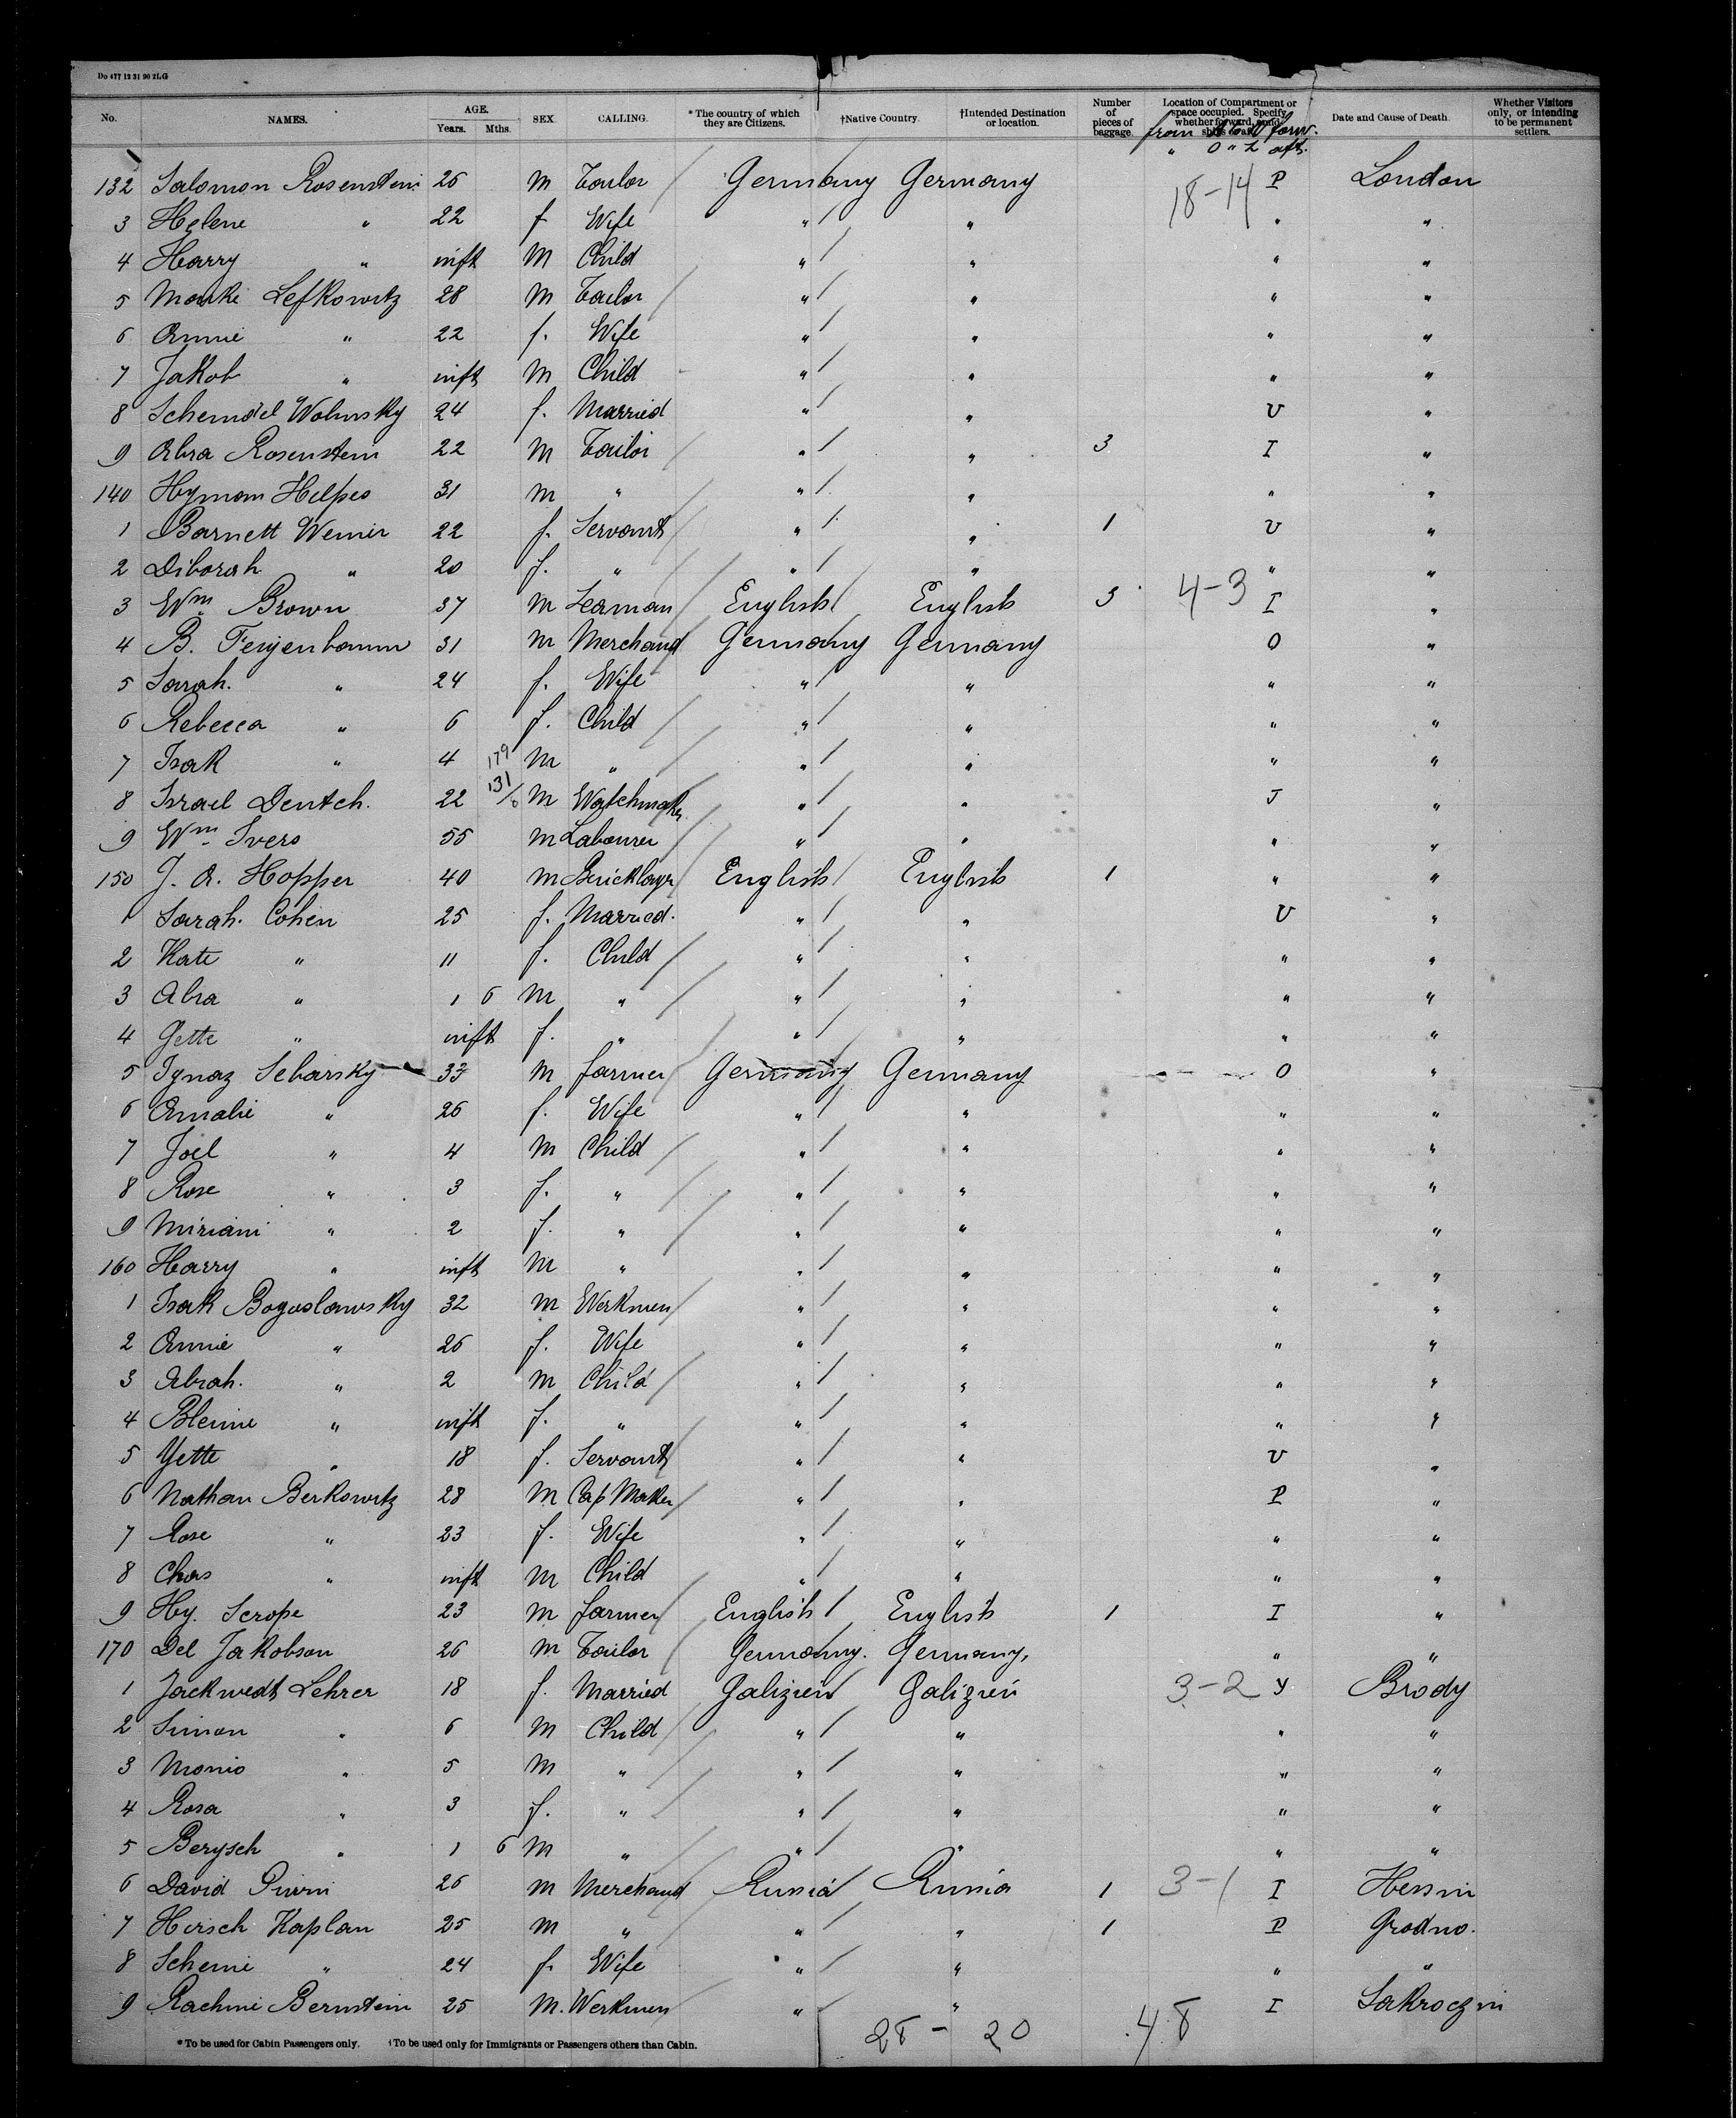 Do 477 12 31 90 2LG
No. NAMES. AGE. Years. Mths. SEX. CALLING. *The country of which they are Citizens. †Native Country. †Intended Destination or location. Number of pieces of baggage. Location of Compartment or space occupied. Specify whether forward, Date and Cause of Death. Whether Visitors only, or intending to be permanent settlers.
from forw.
" O " Z aft.
132 Salomon Rosenstein 26 m Tailor Germany Germany 18-14 P London
3 Helene " 22 f Wife " " " "
4 Harry " inft M Child " " " "
5 Lefkowitz 28 M Tailor " " " "
6 Annie " 22 f. Wife " " " "
7 Jakob " inft M Child " " " "
8 Scheindel Wolinsky 24 f. Married " " U "
9 Abra Rosenstein 22 M Tailor " " 3 I "
140 Hyman Helpes 31 m " " " " "
1 Barnett Werner 22 f. Servant " " 1 U "
2 Diborah " 20 f. " " " " "
3 Wm Brown 37 m Seaman English English 3 4-3 I "
4 B. Feigenbaum 31 m Merchand Germany Germany O "
5 Sarah. " 24 f. Wife " " " "
6 Rebecca " 6 f. Child " " " "
7 Isak " 4 179 m " " " " "
8 Israel Deutch. 22 131/0 M Watchmaker " " J "
9 Wm Ivers 55 m Labourer " " " "
150 J. A. Hopper 40 m Bricklayer English English 1 " "
1 Sarah. Cohen 25 f. Married. " " U "
2 Kate " 11 f. Child " " " "
3 Abra " 1 6 m " " " " "
4 Gette " inft f. " " " " "
5 Ignaz Sebarsky 33 M farmer Germany Germany O "
6 Amalie " 26 f. Wife " " " "
7 Joel " 4 M Child " " " "
8 Rose " 3 f. " " " " "
9 Miriam " 2 f. " " " " "
160 Harry " inft M " " " " "
1 Isak Boguslawsky 32 m Werkmen " " " "
2 Annie " 26 f. Wife " " " "
3 Abrah. " 2 m Child " " " "
4 " inft f. " " " " "
5 Yette " 18 f. Servant " " U "
6 Nathan Berkowitz 28 M Cap Maker " " P "
7 Rose " 23 f. Wife " " " "
8 Chas " inft M Child " " " "
9 Hy. Scrope 23 m farmer English English 1 I "
170 Del Jakobson 26 m Tailor Germany. Germany. " "
1 Lehrer 18 f. Married Galizien Galizien 3-2 Y Brody
2 Simon " 6 M Child " " " "
3 Monio " 5 M " " " " "
4 Rosa " 3 f. " " " " "
5 Berysch " 1 6 M " " " " "
6 David 26 m Merchand Russia Russia 1 3-1 I
7 Hirsch Kaplan 25 m " " " 1 P Grodno.
8 " 24 f. Wife " " " "
9 Bernstein 25 M. Werkmen " " I Sakroczin
28 - 20 48
*To be used for Cabin Passengers only. †To be used only for Immigrants or Passengers others than Cabin.